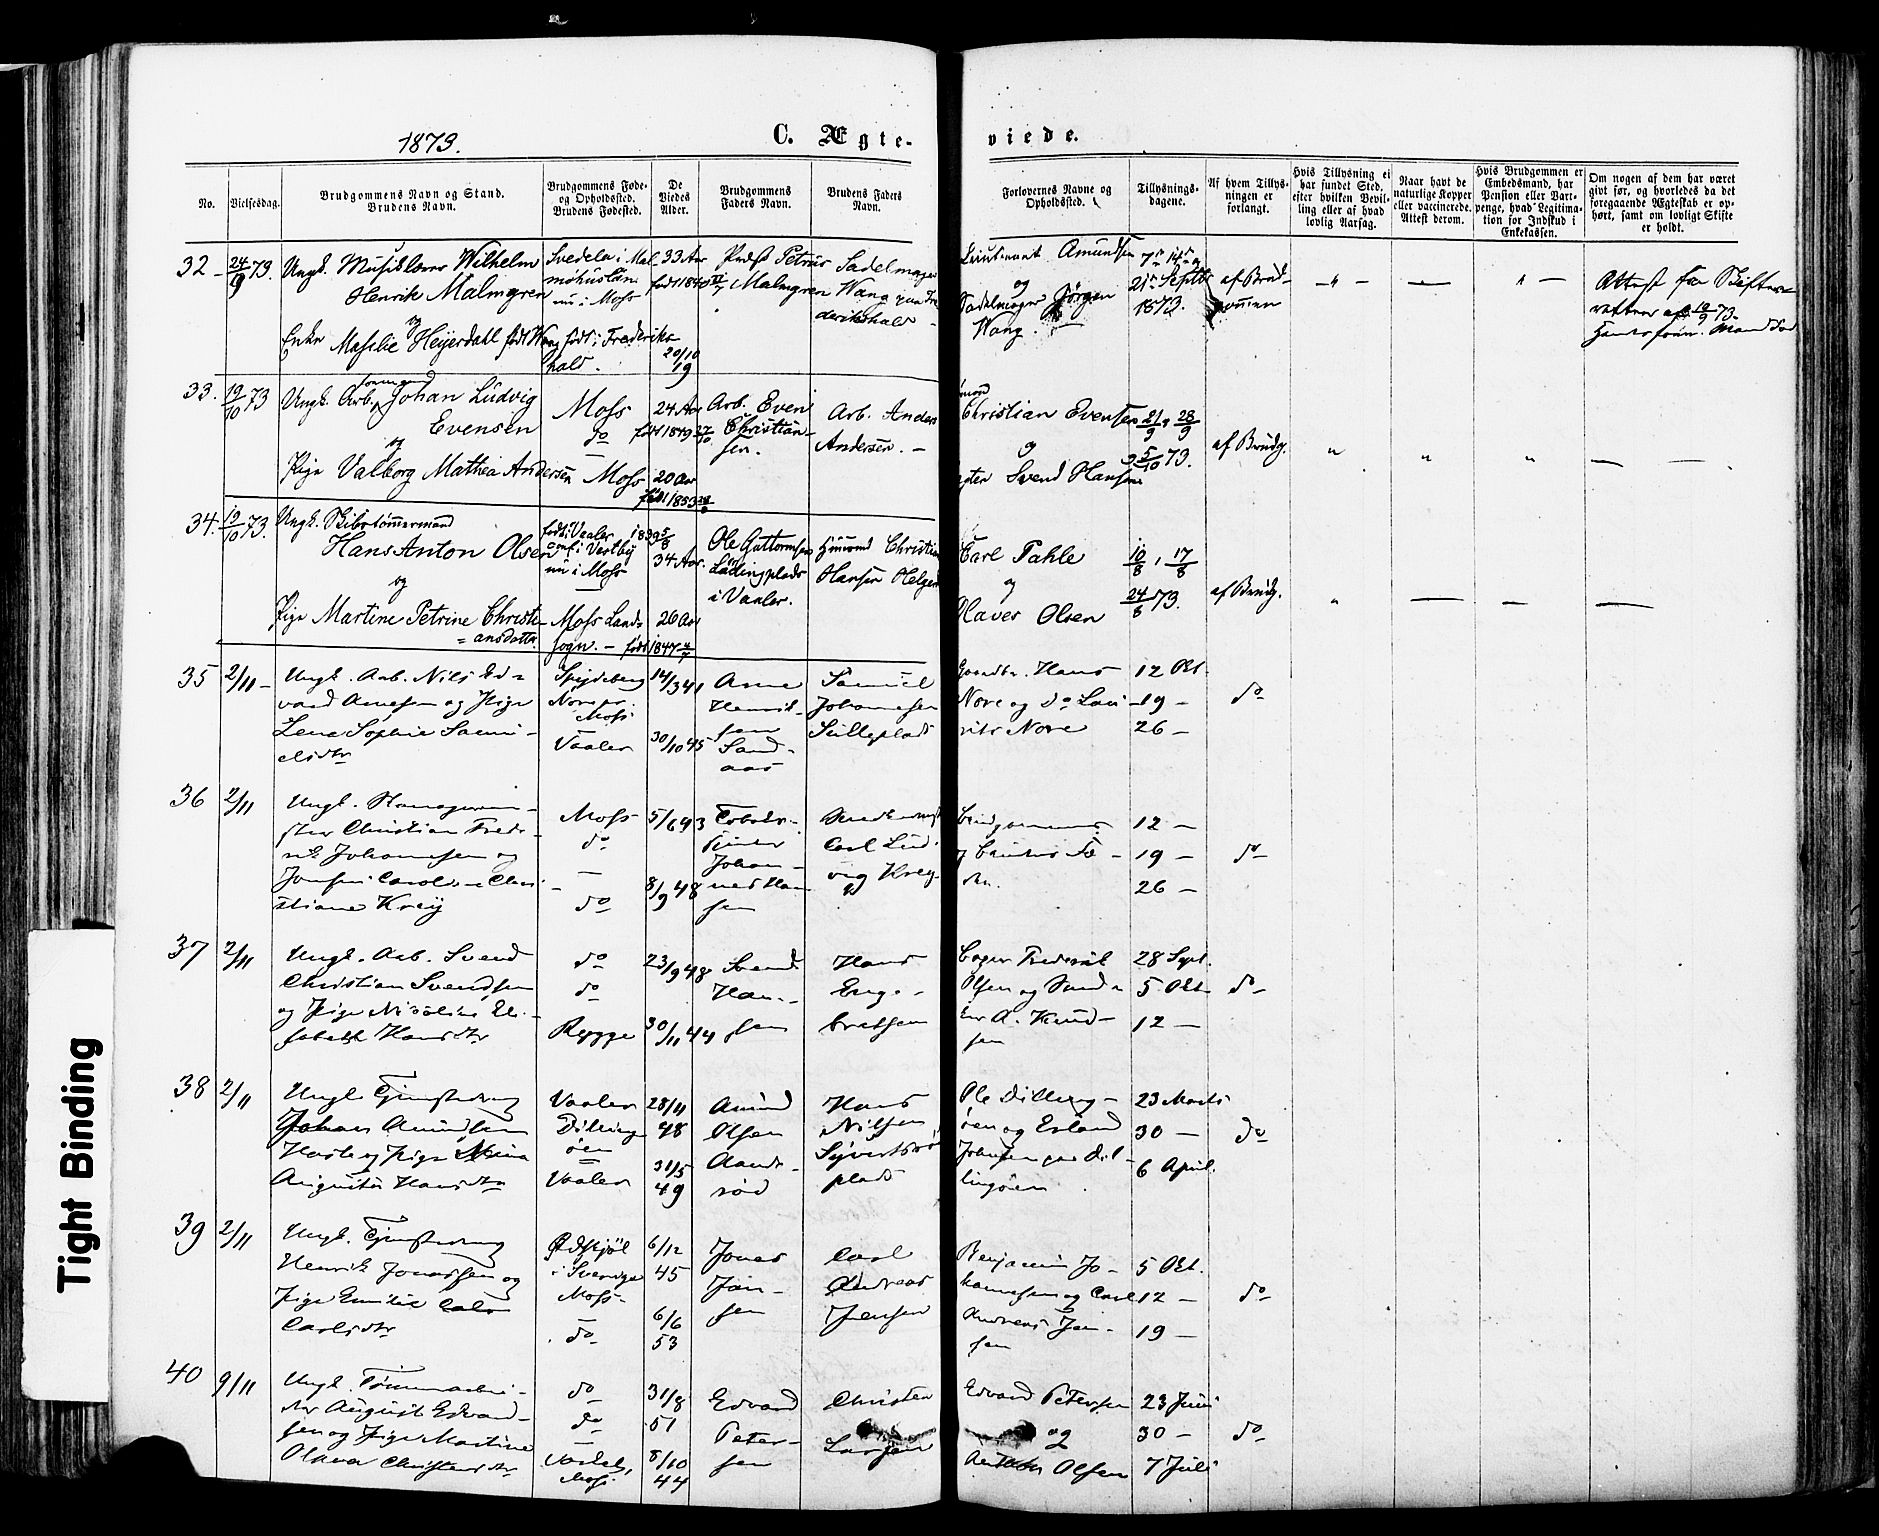 1873.
C. Ægte-
viede.
No.
Vielsesdag.
Brudgommens Navn og Stand.
Brudens Navn.
Brudgommens Føde-
og Opholdssted.
Brudens Fødested.
De
Viedes
Alder.
Brudgommens
Faders Navn.
Brudens Faders
Navn.
Forlovernes Navne og
Opholdssted.
Tillysnings-
dagene.
Af hvem Tillys-
ningen er
forlangt.
Hvis Tillysning ei
har fundet Sted,
efter hvilken Bevil-
ling eller af hvad
lovlig Aarsag.
Naar havt de
naturlige Kopper
eller vaccinerede.
Attest derom.
Hvis Brudgommen er
Embedsmand, har
Pension eller Vart-
penge, hvad Legitima-
tion for Indskud i
Enkekassen.
Om nogen af dem har været
givt før, og hvorledes da det
foregaaende Ægteskab er op-
hørt, samt om lovligt Skifte
er holdt.
32 - 24/9 73.
Ungk. Musiklærer Wilhelm
Henrik Malmgren
og
Enke Masalie Heyerdahl født Wang
Svedela i Mal-
møhuslän
nu i Moss
født i Frederiks-
hald.
33 Aar
født 1840
20/10
19
Petrus
Malmgren
Sadelmager
Wang paa Fre-
derikshald -
Lieutenant Amundsen
og
Sadelmager Jørgen
Wang. -
7de 14de og
21de Septbr
1873.
af Brud-
gommen
- " -
—
" —
Attest fra Skifte-
retten af 10/9 73.
33. 19/10 73
Ungk. Arb. formand Johan Ludvig
Evensen
og
Pige Valborg Mathea Andersen
Moss
do
—
Moss
24 Aar
født 1849 27/10
20 Aar
født 1853
Arb. Even
Christian-
sen.
Arb. Anders
Andersen. -
Christian Evensen
og
Svend Hansen
21/9, 28/9
og 5/10 73.
af Brudg.
"
"
"
—
—
34. 19/10 73.
Ungk. Skibstømmermand
Hans Anton Olsen
og
Pige Martine Petrine Christi-
ansdatter.
født i Vaaler
conf. i Vestby
nu i Moss
—
Moss Land-
sogn. -
1839 5/8
34 Aar.
26 Aar
født 1847
Ole Guttormsen
Ladingplads
i Vaaler.
Huusmd Christian
Hansen Helger
Carl Pahle
og
Olaves Olsen
10/8, 17/8
24/8 73.
af Brudg.
"
—
—
—
35 2/11 -
Ungk. Arb. Nils Ed-
vard Arnesen og Pige
Lena Sophie Samu-
elsdtr
Spydeberg
Nore pr.
Moss
Vaaler
14/3 41
30/10 45
Arne
Henrik-
sen
Sand-
aas
Samuel
Johannesen
Sulleplads
Gaardbr. Hans
Nore og do Lau-
rits Nore
12 Okt.
19 -
26 -
do
36 2/11
Christian Frede-
rik Johannesen og
Jomfru Caroline Chri-
stiane Krey
Moss
do
—
do
5/6 43
8/9 48
Johan-
nes Han-
sen
Carl Lud-
vig Krey
12 -
19 -
26 -
do
37 2/11
Ungk. Arb. Svend
Christian Svendsen
og Pige Nicoline Eli-
sabeth Hansdtr
do
do
Rygge
23/9 48
30/11 44
Svend
Han-
sen
Hans
Enge-
bretsen
Bager Frederik
Olsen og
A. Knud-
sen
28 Sept.
5 Okt
12 -
do
38 2/11
Ungk. Tjenestedreng
Johan Amundsen
og Pige
Augusta Hansdtr
Vaaler
Dilling-
øen
—
Vaaler
28/4
48
31/5
49
Amund
Olsen
Aande-
rød
Hans
Nilsen
Syvertsrød
plads
Ole Dilling-
øen og Erland
Johnsen paa Dil-
lingøen
23 Marts
30 -
6 April.
do
39 2/11
Ungk. Tjenestedreng
Henrik Jonassen og
Pige Emilie
Carlsdtr
Ødskjöl
i Sverige
Moss
—
do
6/12
45
6/6
53
Jonas
Jan-
sen
Carl
Andreas
Jensen
Benjamin Jo-
hannesen og Carl
Andreas Jen-
sen
5 Okt.
12 -
19 -
do
40 9/11
Ungk. Tømmermand
August Edvard-
sen og Pige Martine
Olava Christensdtr
do
do
—
Moss
31/8
51
8/10
44
Edvard
Peter-
sen
Christen
Larsen
Edvard Petersen
og
Anton Olsen
23 Juni
30 -
7 Juli
do
Tight Binding